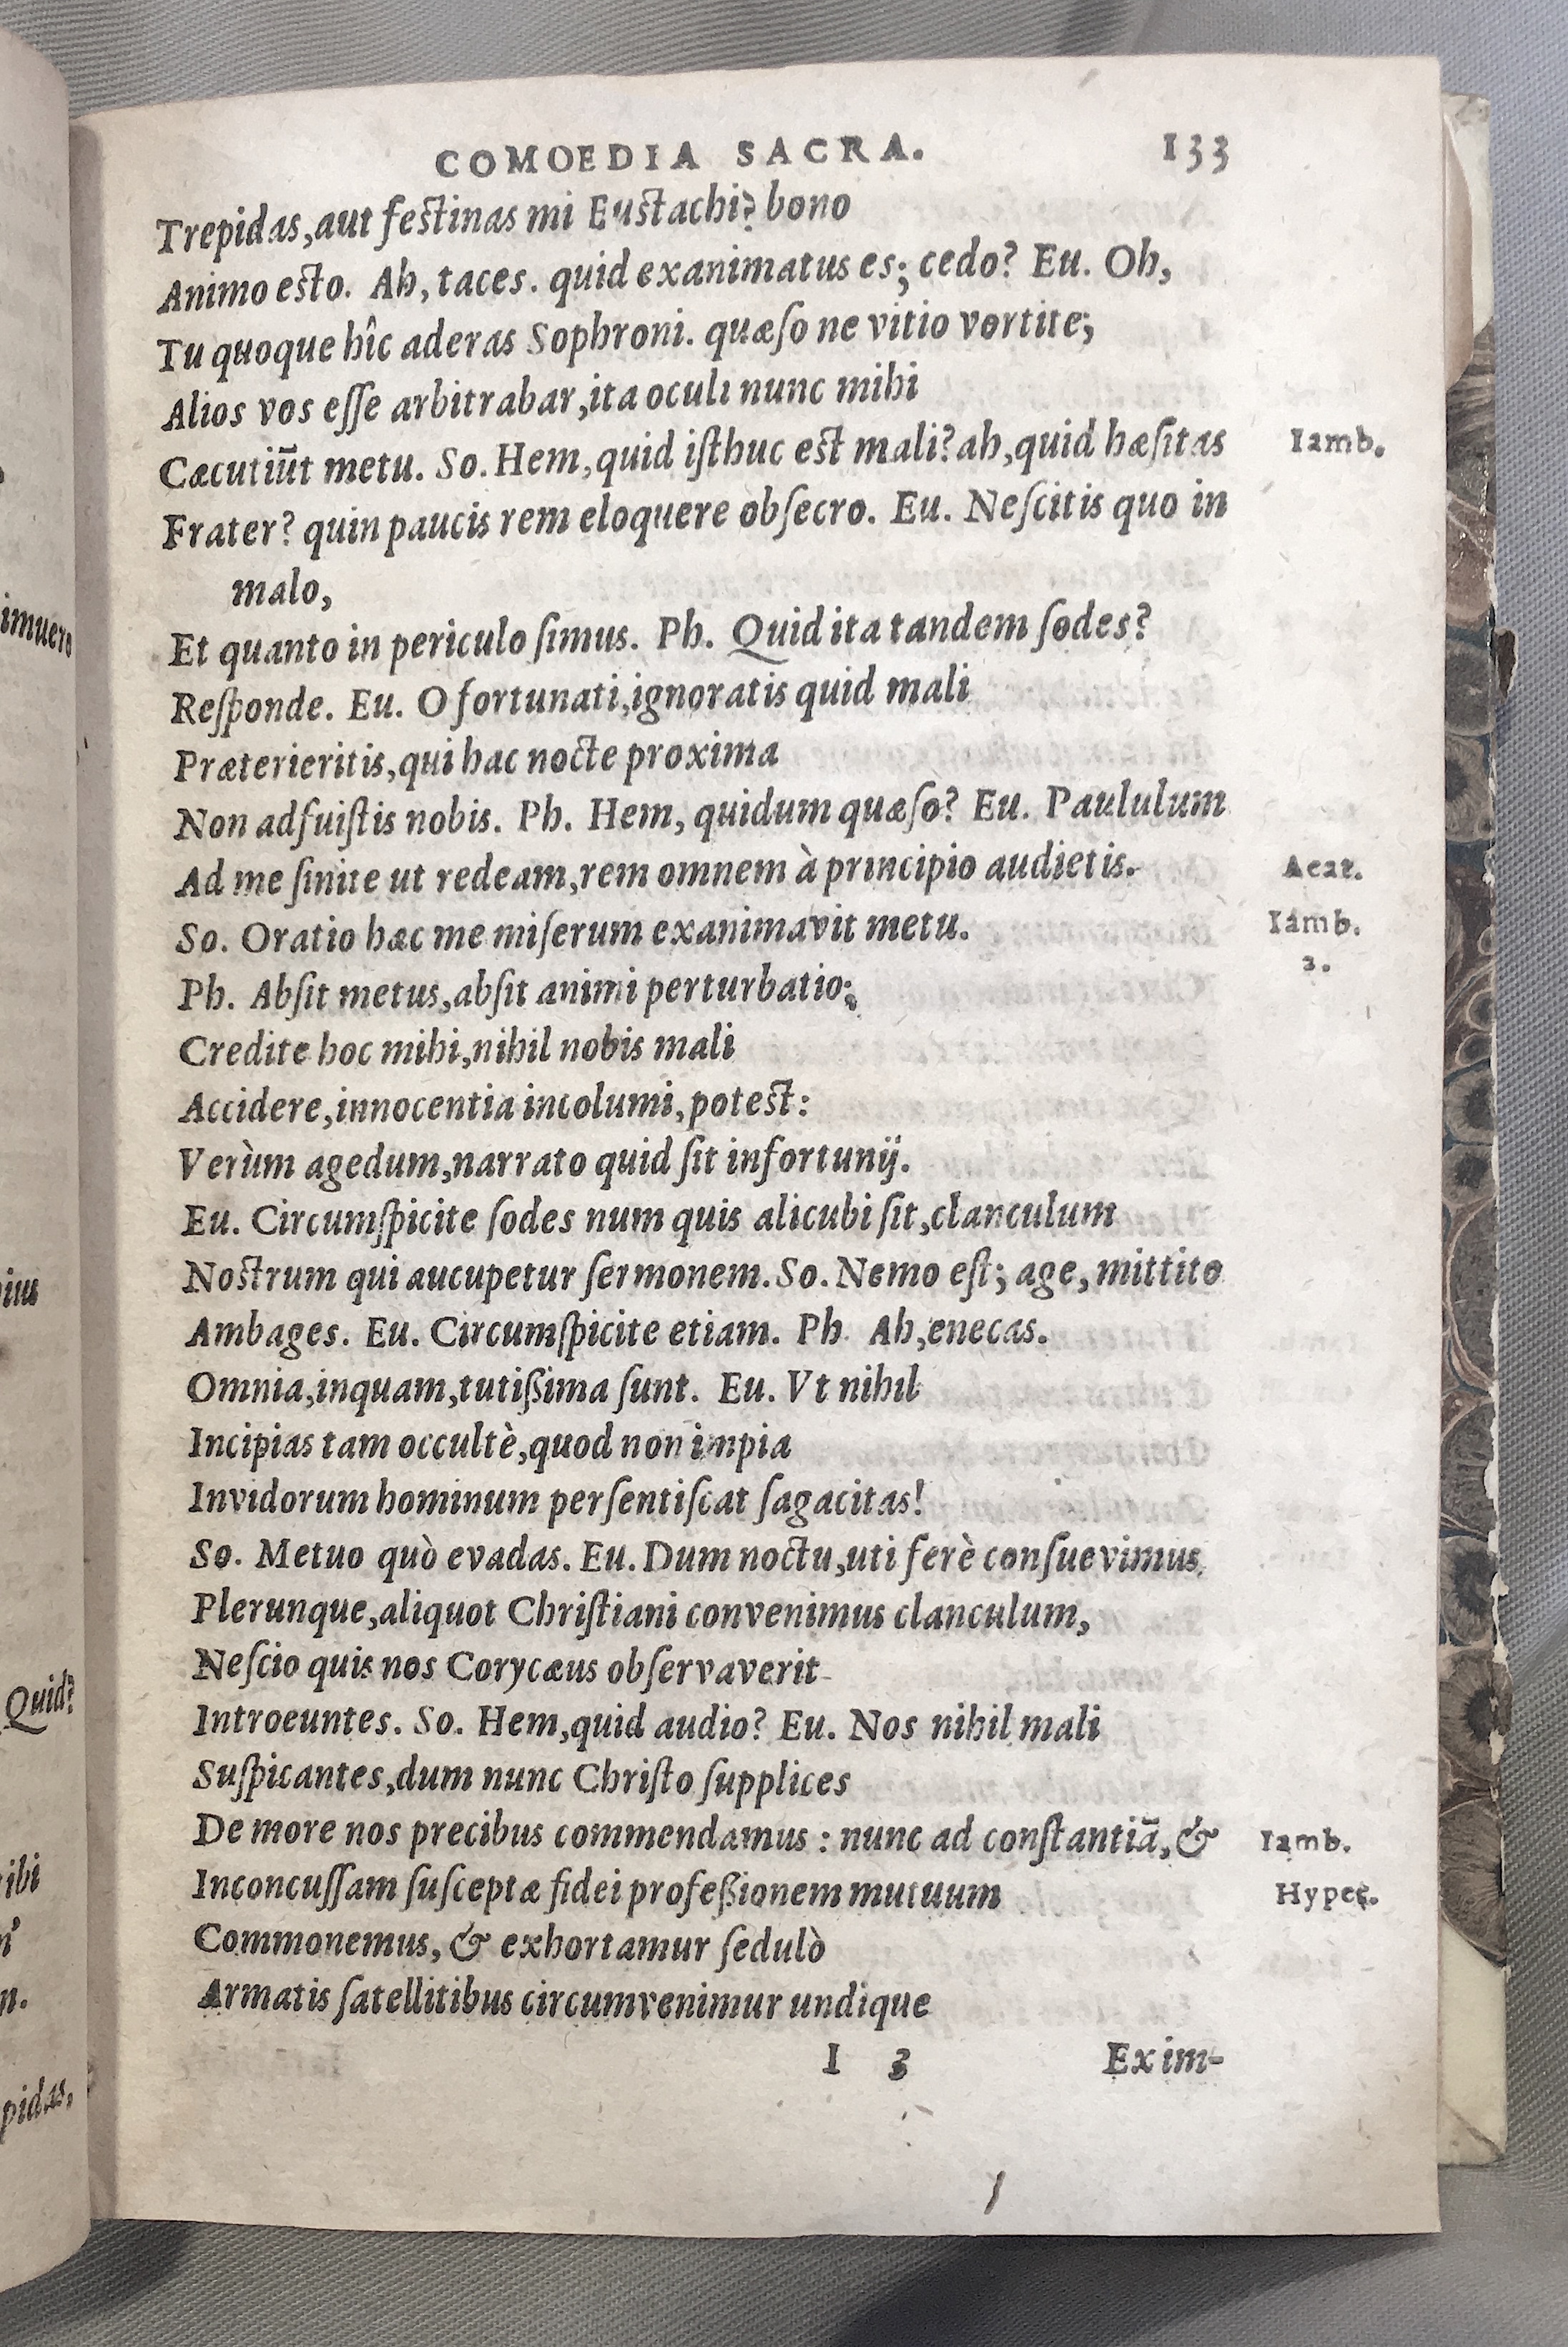 COMOEDIA SACRA. 133
Trepidas,aut festinas mi Eustachi? bono
Animo esto. Ah, taces. quid exanimatus es; cedo? Eu. Oh,
Tu quoque hîc aderas Sophroni. quæſo ne vitio vortite;
Alios vos eſſe arbitrabar,ita oculi nunc mihi
Cæcutiūt metu. So. Hem,quid iſthuc est mali?ah,quid hæſitas Iamb.
Frater? quin paucis rem eloquere obſecro. Eu. Neſcitis quo in
malo,
Et quanto in periculo ſimus. Ph. Quid ita tandem ſodes?
Reſponde. Eu. O fortunati,ignoratis quid mali
Præterieritis,qui hac nocte proxima
Non adfuiſtis nobis. Ph. Hem, quidum quæſo? Eu. Paululum
Ad me ſinite ut redeam,rem omnem à principio audietis. Acat.
So. Oratio hæc me miſerum exanimavit metu. Iamb.
2.
Ph. Abſit metus,abſit animi perturbatio;
Credite hoc mihi,nihil nobis mali
Accidere,innocentia incolumi,potest:
Verùm agedum,narrato quid ſit infortunij.
Eu. Circumſpicite ſodes num quis alicubi ſit,clanculum
Nostrum qui aucupetur ſermonem. So. Nemo eſt; age, mittito
Ambages. Eu. Circumſpicite etiam. Ph. Ah,enecas.
Omnia,inquam,tutißima ſunt. Eu. Vt nihil
Incipias tam occultè,quod non impia
Invidorum hominum perſentiſcat ſagacitas!
So. Metuo quò evadas. Eu. Dum noctu,uti ferè conſuevimus,
Plerunque,aliquot Chriſtiani convenimus clanculum,
Neſcio quis nos Corycæus obſervaverit
Introeuntes. So. Hem,quid audio? Eu. Nos nihil mali
Suſpicantes,dum nunc Chriſto ſupplices
De more nos precibus commendamus : nunc ad conſtantiā,& Iamb.
Inconcuſſam ſuſceptæ fidei profeßionem mutuum Hyper.
Commonemus, & exhortamur ſedulò
Armatis ſatellitibus circumvenimur undique
I 3 Exim-